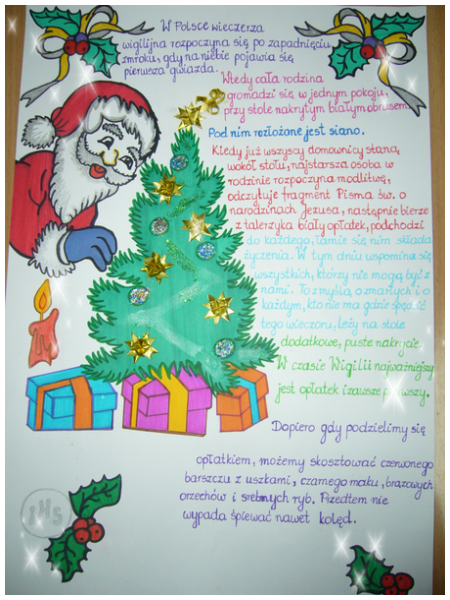 W Polsce wieczerza
wigilijna rozpoczyna się po zapadnięciu
zmroku, gdy na niebie pojawia się
pierwsza gwiazda.
Wtedy cała rodzina
gromadzi się w jednym pokoju,
przy stole nakrytym białym obrusem.
Pod nim rozłożone jest siano.
Kiedy już wszyscy domownicy staną,
wokół stołu, najstarsza osoba w
rodzinie rozpoczyna modlitwę,
odczytuje fragment Pisma Św. o
narodzinach Jezusa, następnie bierze
z talerzyka biały opłatek, podchodzi
do każdego, łamie się nim składa
życzenia. W tym dniu wspomina się
wszystkich, którzy nie mogą być z
nami. To z myślą o zmarłych i o
każdym, kto nie ma gdzie spędzić
tego wieczoru, leży na stole
dodatkowe, puste nakrycie.
W czasie Wigilii najważniejszy
jest opłatek i zawsze pierwszy.
Dopiero gdy podzielimy się
opłatkiem, możemy skosztować czerwonego
barszczu z uszkami, czarnego maku, brązowych
orzechów i srebrnych ryb. Przedtem nie
wypada śpiewać nawet kolęd.
IHS